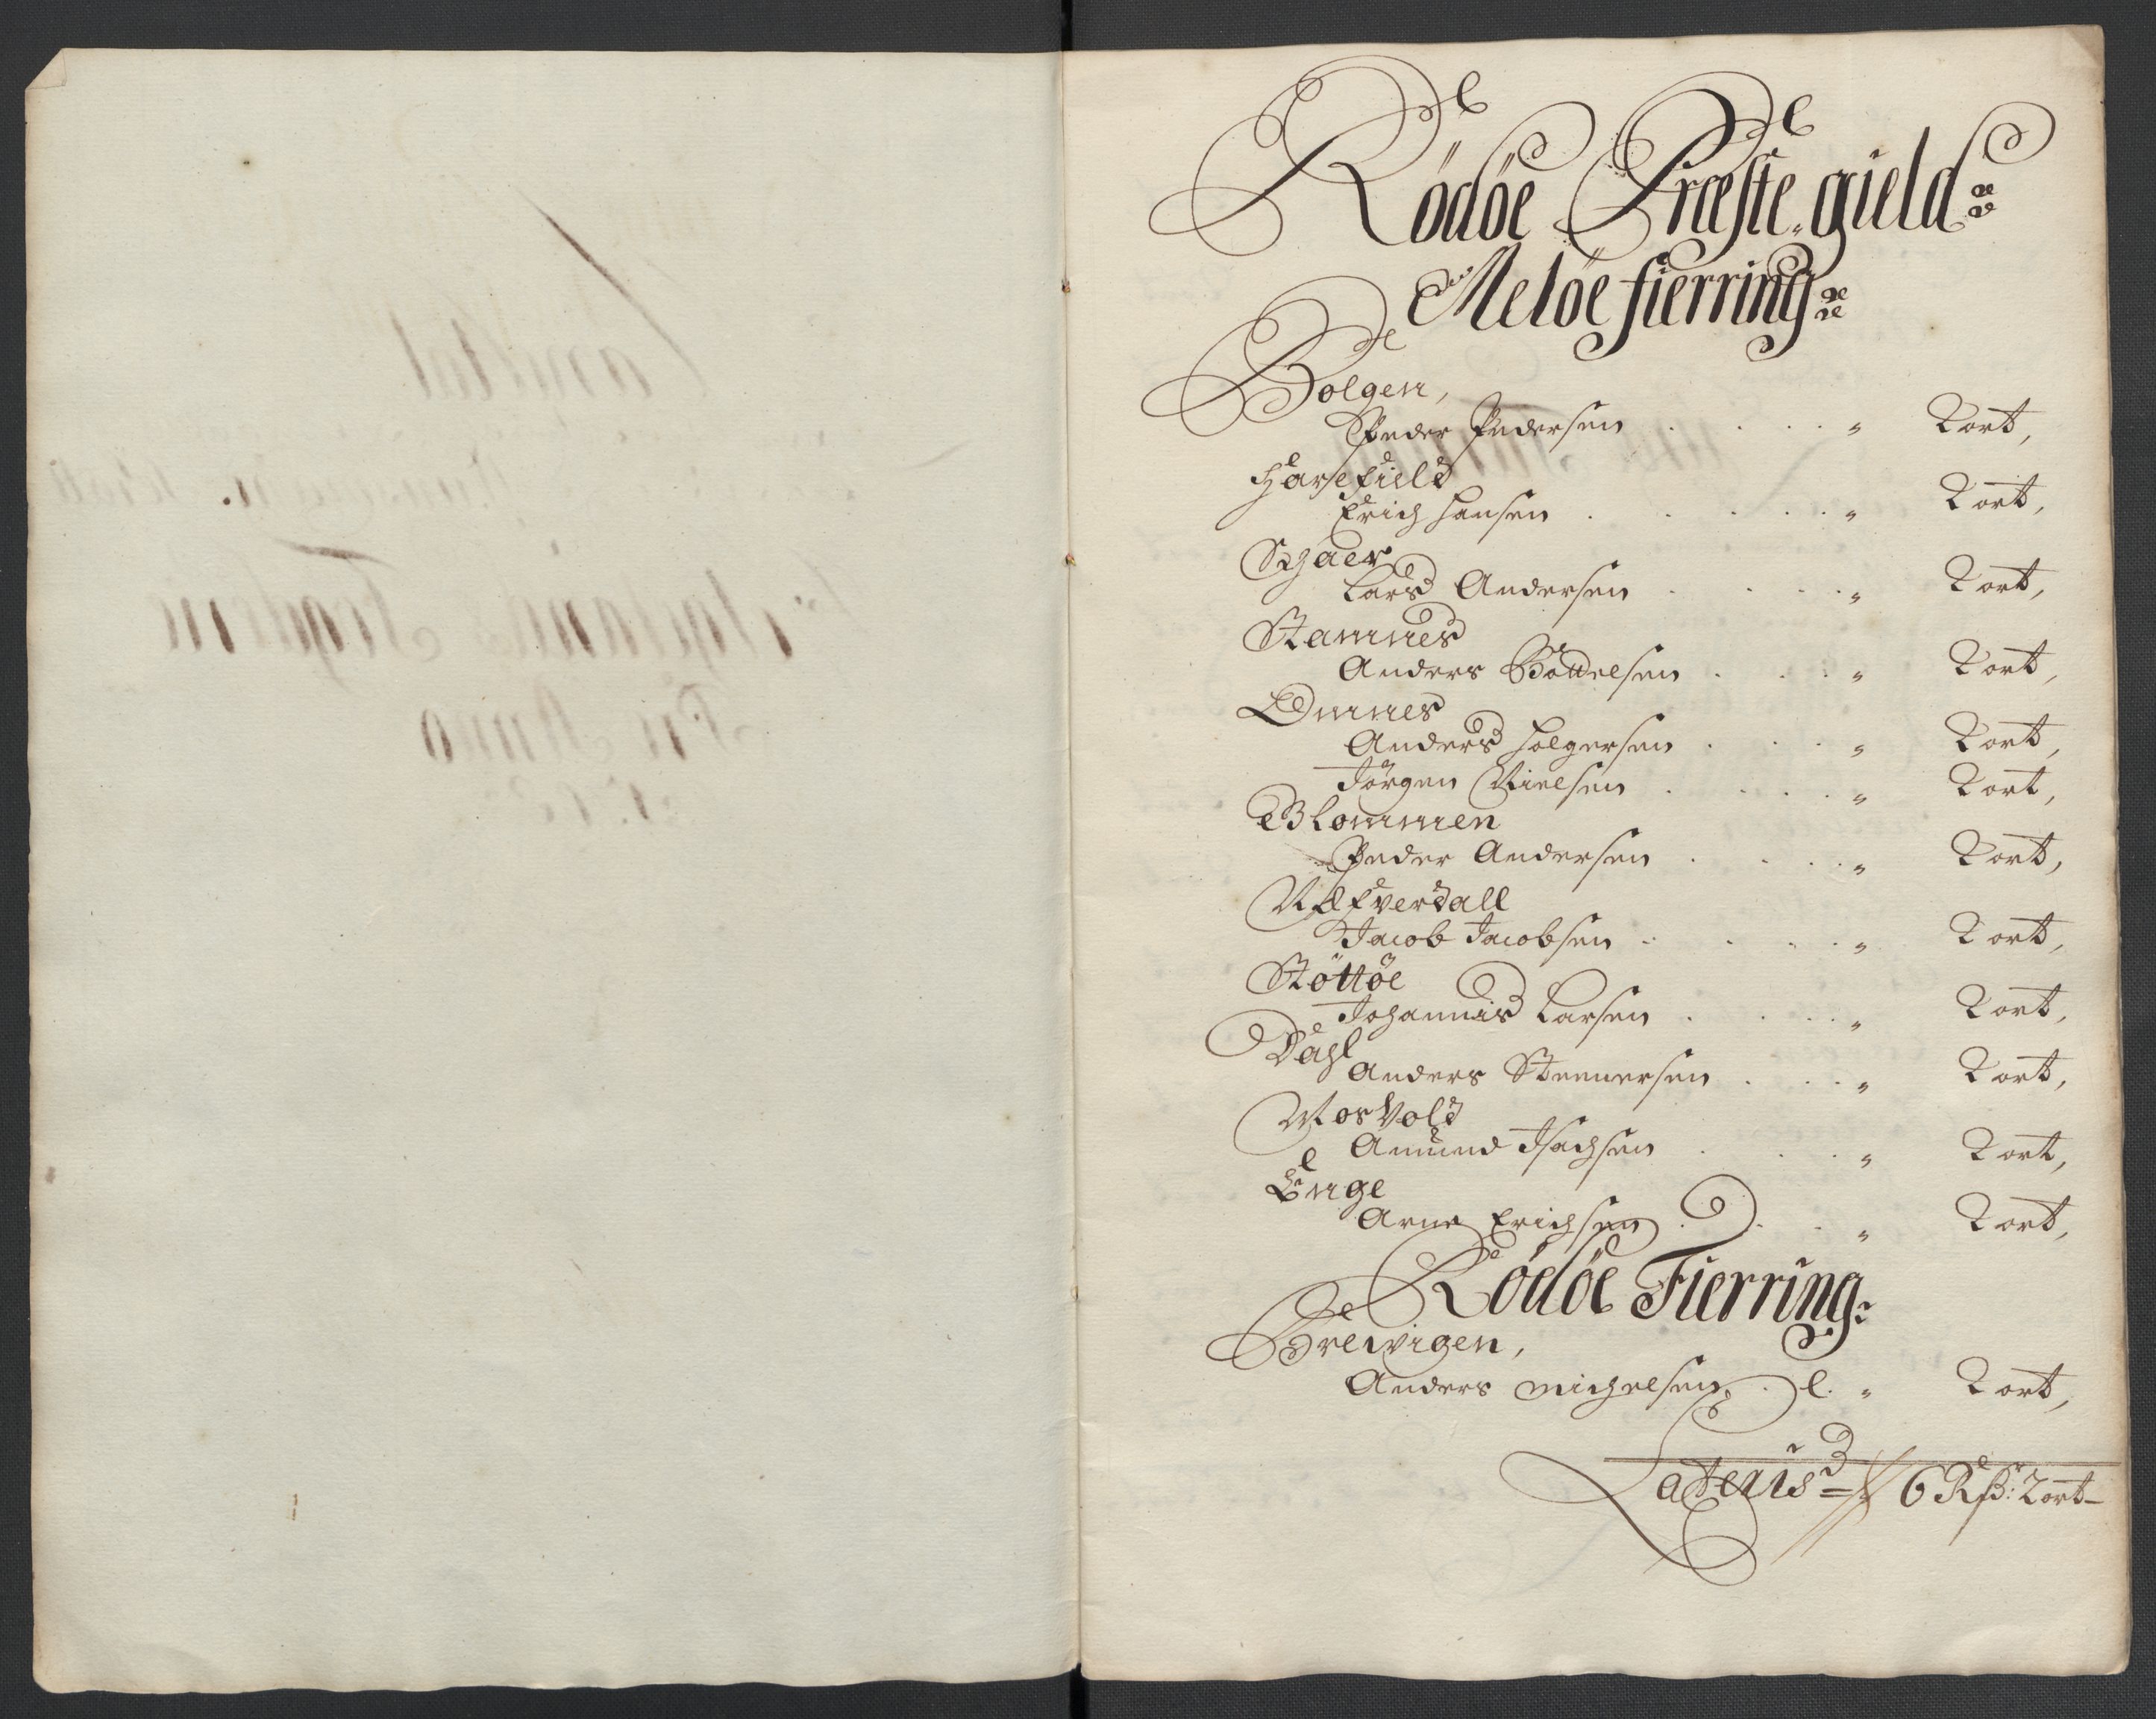 Rödöe Præste gield
Melöe fierring
Bolgen,
Peder Pedersen . . . . „ 2 ort,
Harsefield
Erich Hansen . . . . . „ 2 ort,
Schaer
Lars Andersen . . . . „ 2 ort,
Stamnes
Anders Bottelsen . . . „ 2 ort,
Omnes
Anders Holgersen . . . „ 2 ort,
Jörgen Nielsen . . . . „ 2 ort,
Blommen
Peder Andersen . . . . „ 2 ort,
Næfverdall
Jacob Jacobsen . . . . „ 2 ort,
Støttöe
Johannis Larsen . . . . „ 2 ort,
Dahl
Anders Steenersen . . . „ 2 ort,
Mosvold
Amund Isachsen . . . . „ 2 ort,
Enge
Arne Erichsen . . . „ 2 ort,
Rödöe Fierring
Brewigen,
Anders Michelsen . . „ 2 ort,
Lateris 6 Rß: 2 ort